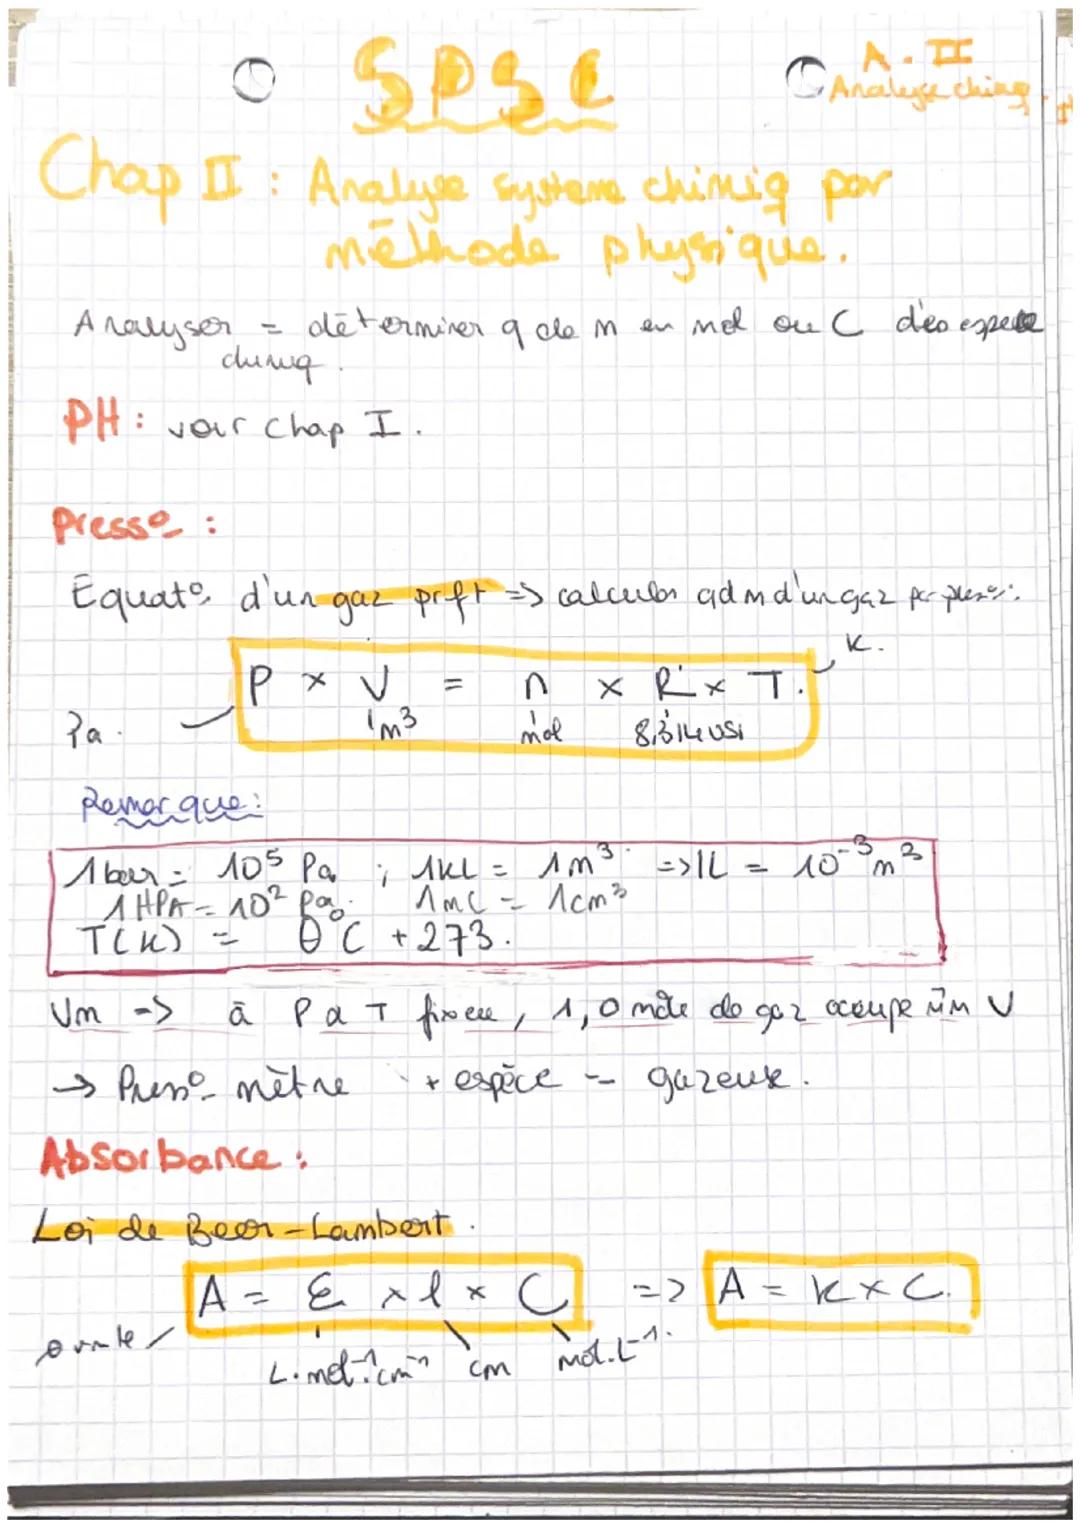 SPSC
A. II
Analyse chimiq
Chap II : Analyse système chimiq par
méthode physique.
Analyser = déterminer q de m en mol ou C des espece
chimiq.
PH : voir Chap I.
Press° :
Equat° d'un gaz prft => calculer qdm d'un gaz par press° :
K.
P × V = n × R × T.
Pa. m³ mol 8,314 USI
Remarque :
1 bar = 10⁵ Pa ; 1KL = 1m³ => 1L = 10⁻³ m³
1 HPA = 10² Pa. 1mL = 1cm³
T(K) = θ°C + 273.
Vm => à P et T fixée, 1,0 mole de gaz occupe un V
→ Press° mètre + espèce gazeuse.
Absorbance :
Loi de Beer-Lambert.
A = Ɛ × l × C => A = K × C.
L.mol⁻¹.cm⁻¹ cm mol.L⁻¹.